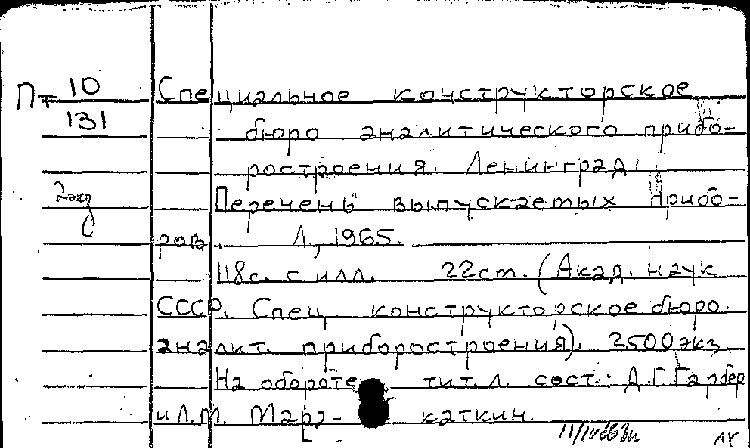 Пт 10
131
2 экз
Специальное конструкторское
бюро аналитического прибо-
ростроения. Ленинград.
Перечень выпускаемых прибо-
ров. Л., 1965.
118с. с илл. 22 см. (Акад. наук
СССР. Спец. конструкторское бюро
аналит. приборостроения). 2500 экз
На обороте тит. л. сост.: Д.Г. Гарбер
и Л.М. Мар- каткин.